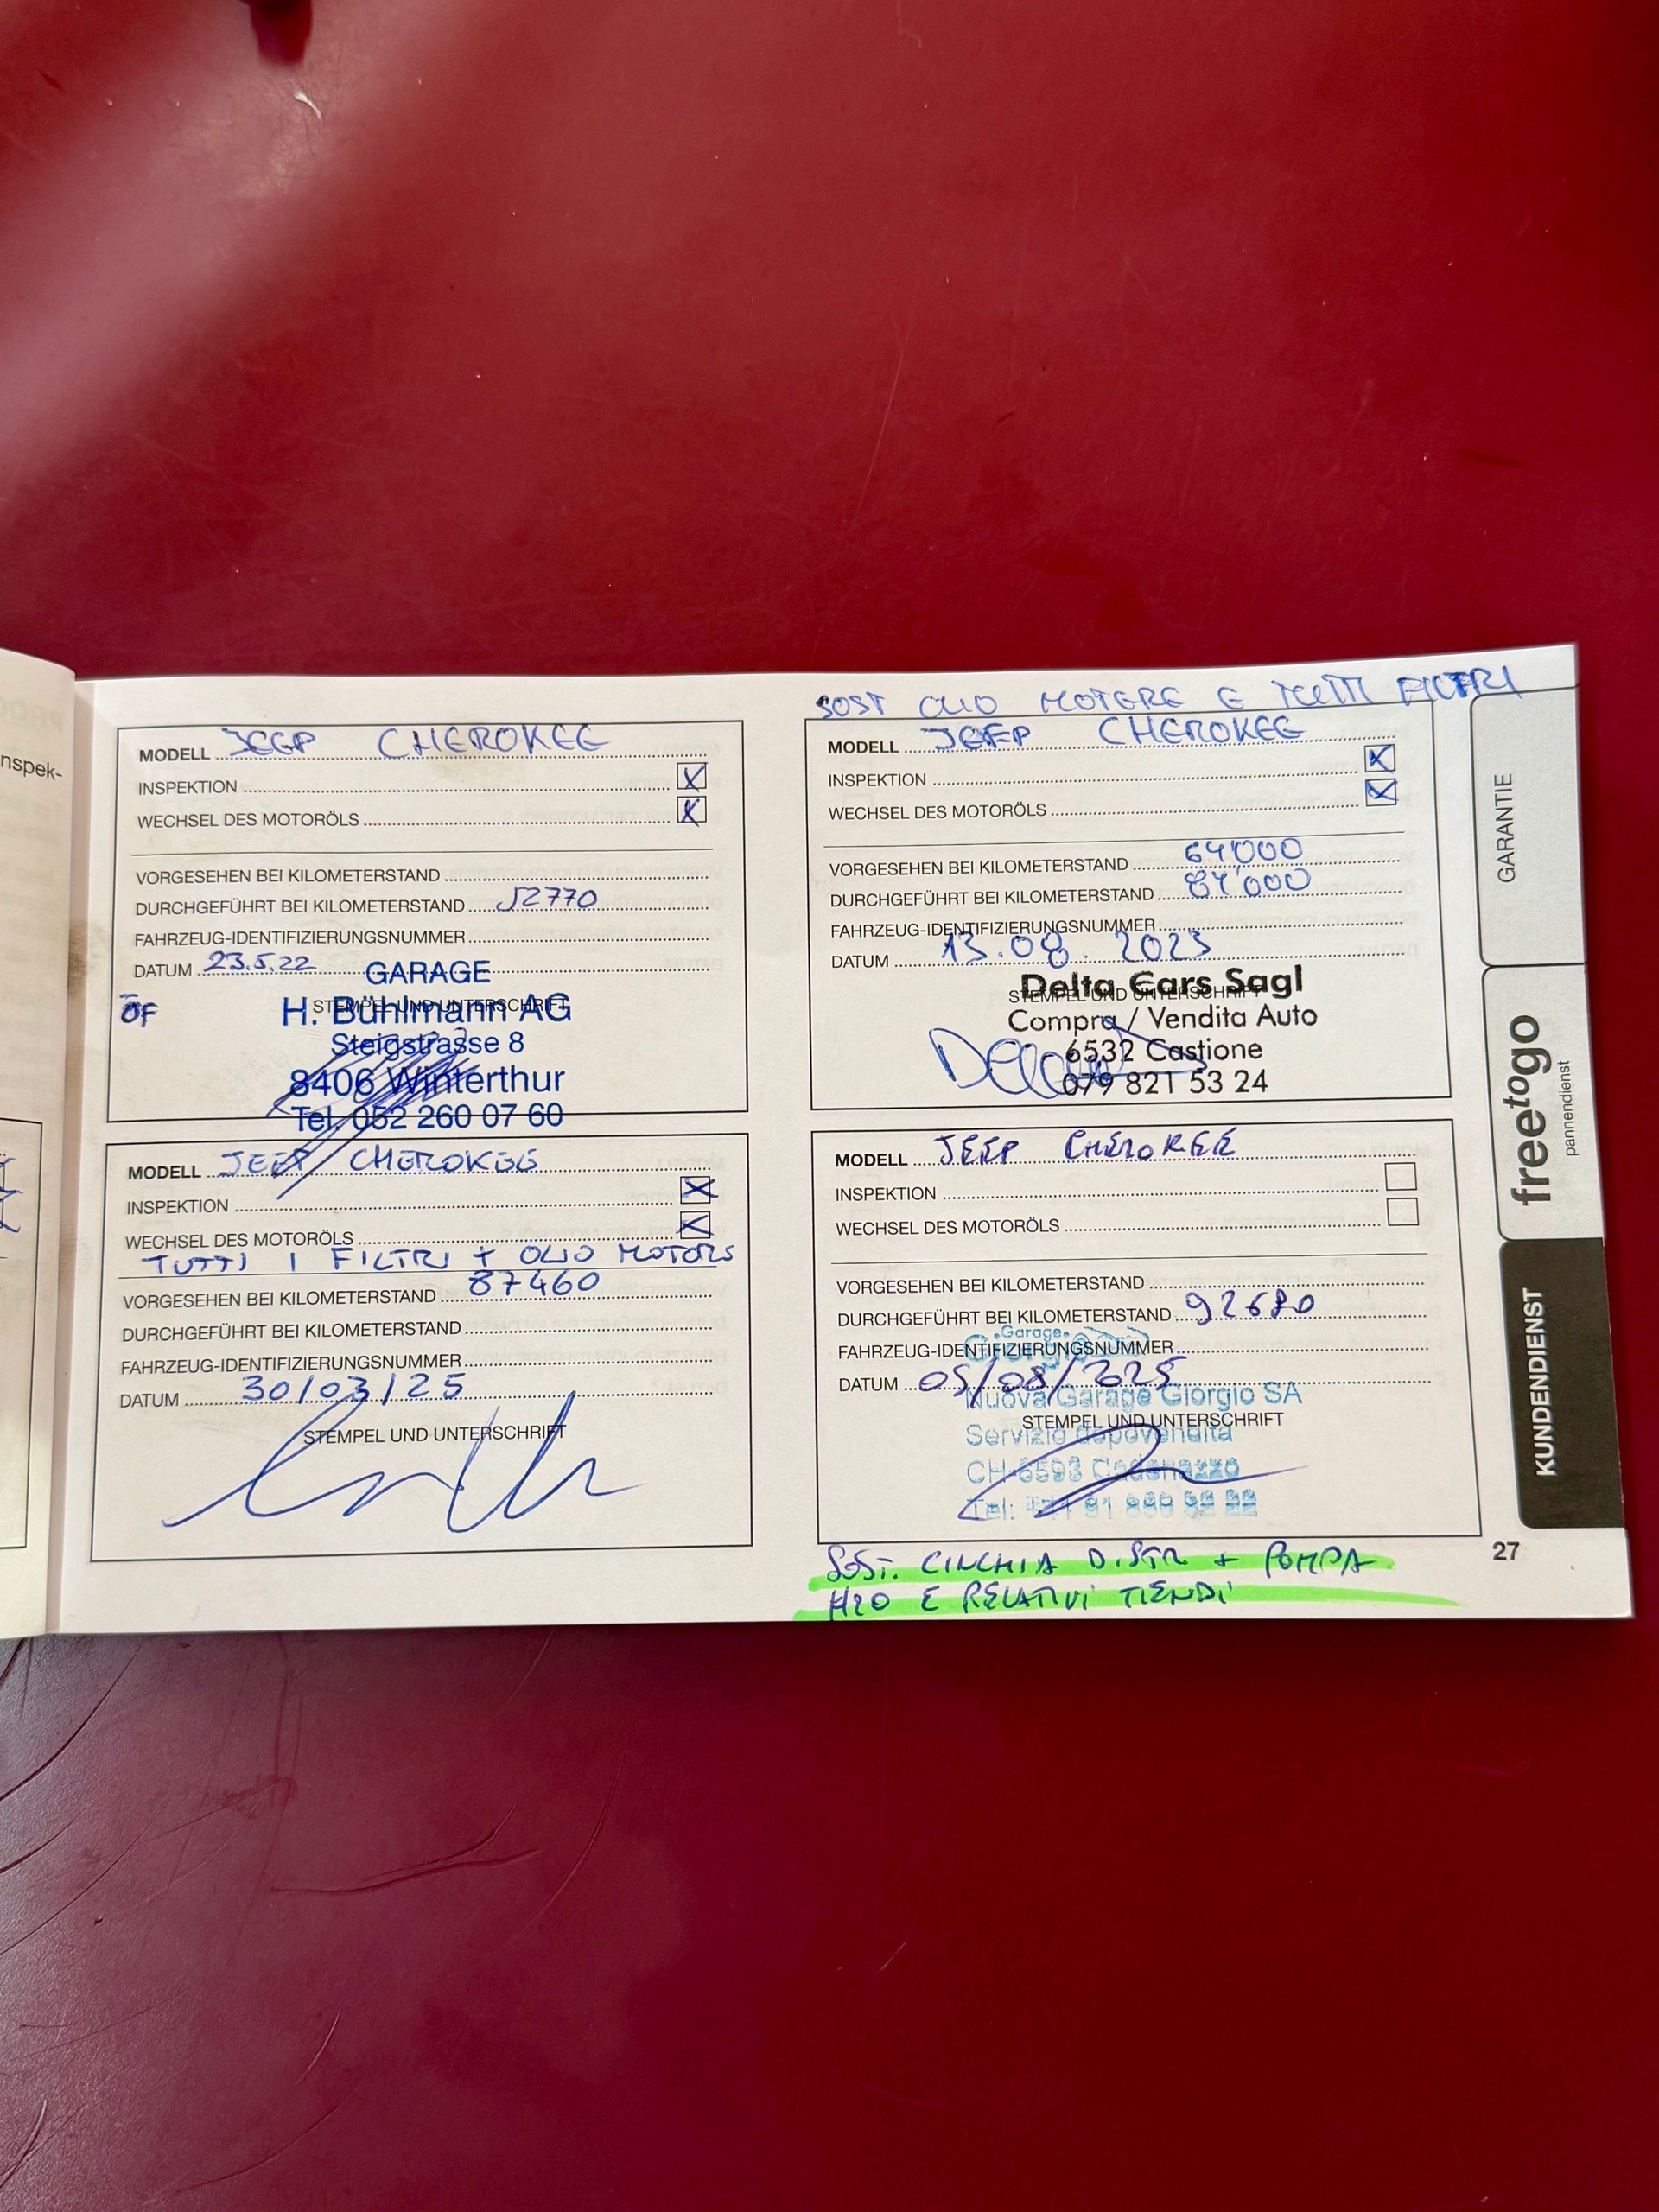 nspek-
MODELL JEEP CHEROKEE
INSPEKTION X
WECHSEL DES MOTORÖLS X
VORGESEHEN BEI KILOMETERSTAND
DURCHGEFÜHRT BEI KILOMETERSTAND 52770
FAHRZEUG-IDENTIFIZIERUNGSNUMMER
DATUM 23.5.22
STEMPEL UND UNTERSCHRIFT
GARAGE
H. Bühlmann AG
Steigstrasse 8
8406 Winterthur
Tel. 052 260 07 60
SOST OLIO MOTORE E TUTTI FILTRI
MODELL JEEP CHEROKEE
INSPEKTION X
WECHSEL DES MOTORÖLS X
VORGESEHEN BEI KILOMETERSTAND 64'000
DURCHGEFÜHRT BEI KILOMETERSTAND 84'000
FAHRZEUG-IDENTIFIZIERUNGSNUMMER
DATUM 13.08.2023
STEMPEL UND UNTERSCHRIFT
Delta Cars Sagl
Compra / Vendita Auto
6532 Castione
079 821 53 24
MODELL JEEP CHEROKEE
INSPEKTION X
WECHSEL DES MOTORÖLS X
TUTTI I FILTRI + OLIO MOTORE
VORGESEHEN BEI KILOMETERSTAND 87460
DURCHGEFÜHRT BEI KILOMETERSTAND
FAHRZEUG-IDENTIFIZIERUNGSNUMMER
DATUM 30/03/25
STEMPEL UND UNTERSCHRIFT
MODELL JEEP CHEROKEE
INSPEKTION
WECHSEL DES MOTORÖLS
VORGESEHEN BEI KILOMETERSTAND
DURCHGEFÜHRT BEI KILOMETERSTAND 92680
FAHRZEUG-IDENTIFIZIERUNGSNUMMER
DATUM 05/08/2025
STEMPEL UND UNTERSCHRIFT
Garage
Giorgio
Nuova Garage Giorgio SA
Servizio dopovendita
CH-6593 Cadenazzo
Tel:
SOST. CINGHIA DISTR + POMPA
H2O E RELATIVI TIENDI
27
GARANTIE
freetogo
pannendienst
KUNDENDIENST